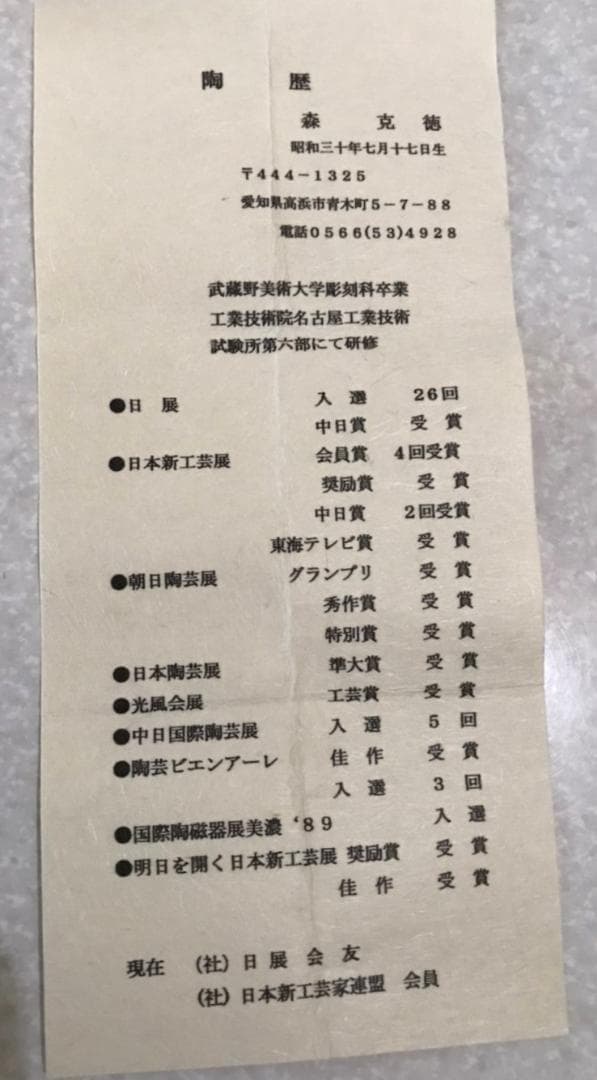 陶　歴
森　克　徳
昭和三十年七月十七日生
〒444－1325
愛知県高浜市青木町5－7－88
電話0566(53)4928
武蔵野美術大学彫刻科卒業
工業技術院名古屋工業技術
試験所第六部にて研修
●日　展　入　選　26回
中日賞　受　賞
●日本新工芸展　会員賞　4回受賞
奨励賞　受　賞
中日賞　2回受賞
東海テレビ賞　受　賞
●朝日陶芸展　グランプリ　受　賞
秀作賞　受　賞
特別賞　受　賞
●日本陶芸展　準大賞　受　賞
●光風会展　工芸賞　受　賞
●中日国際陶芸展　入　選　5　回
●陶芸ビエンアーレ　佳　作　受　賞
入　選　3　回
●国際陶磁器展美濃‘89　入　選
●明日を開く日本新工芸展　奨励賞　受　賞
佳　作　受　賞
現在　（社）日　展　会　友
（社）日本新工芸家連盟　会員